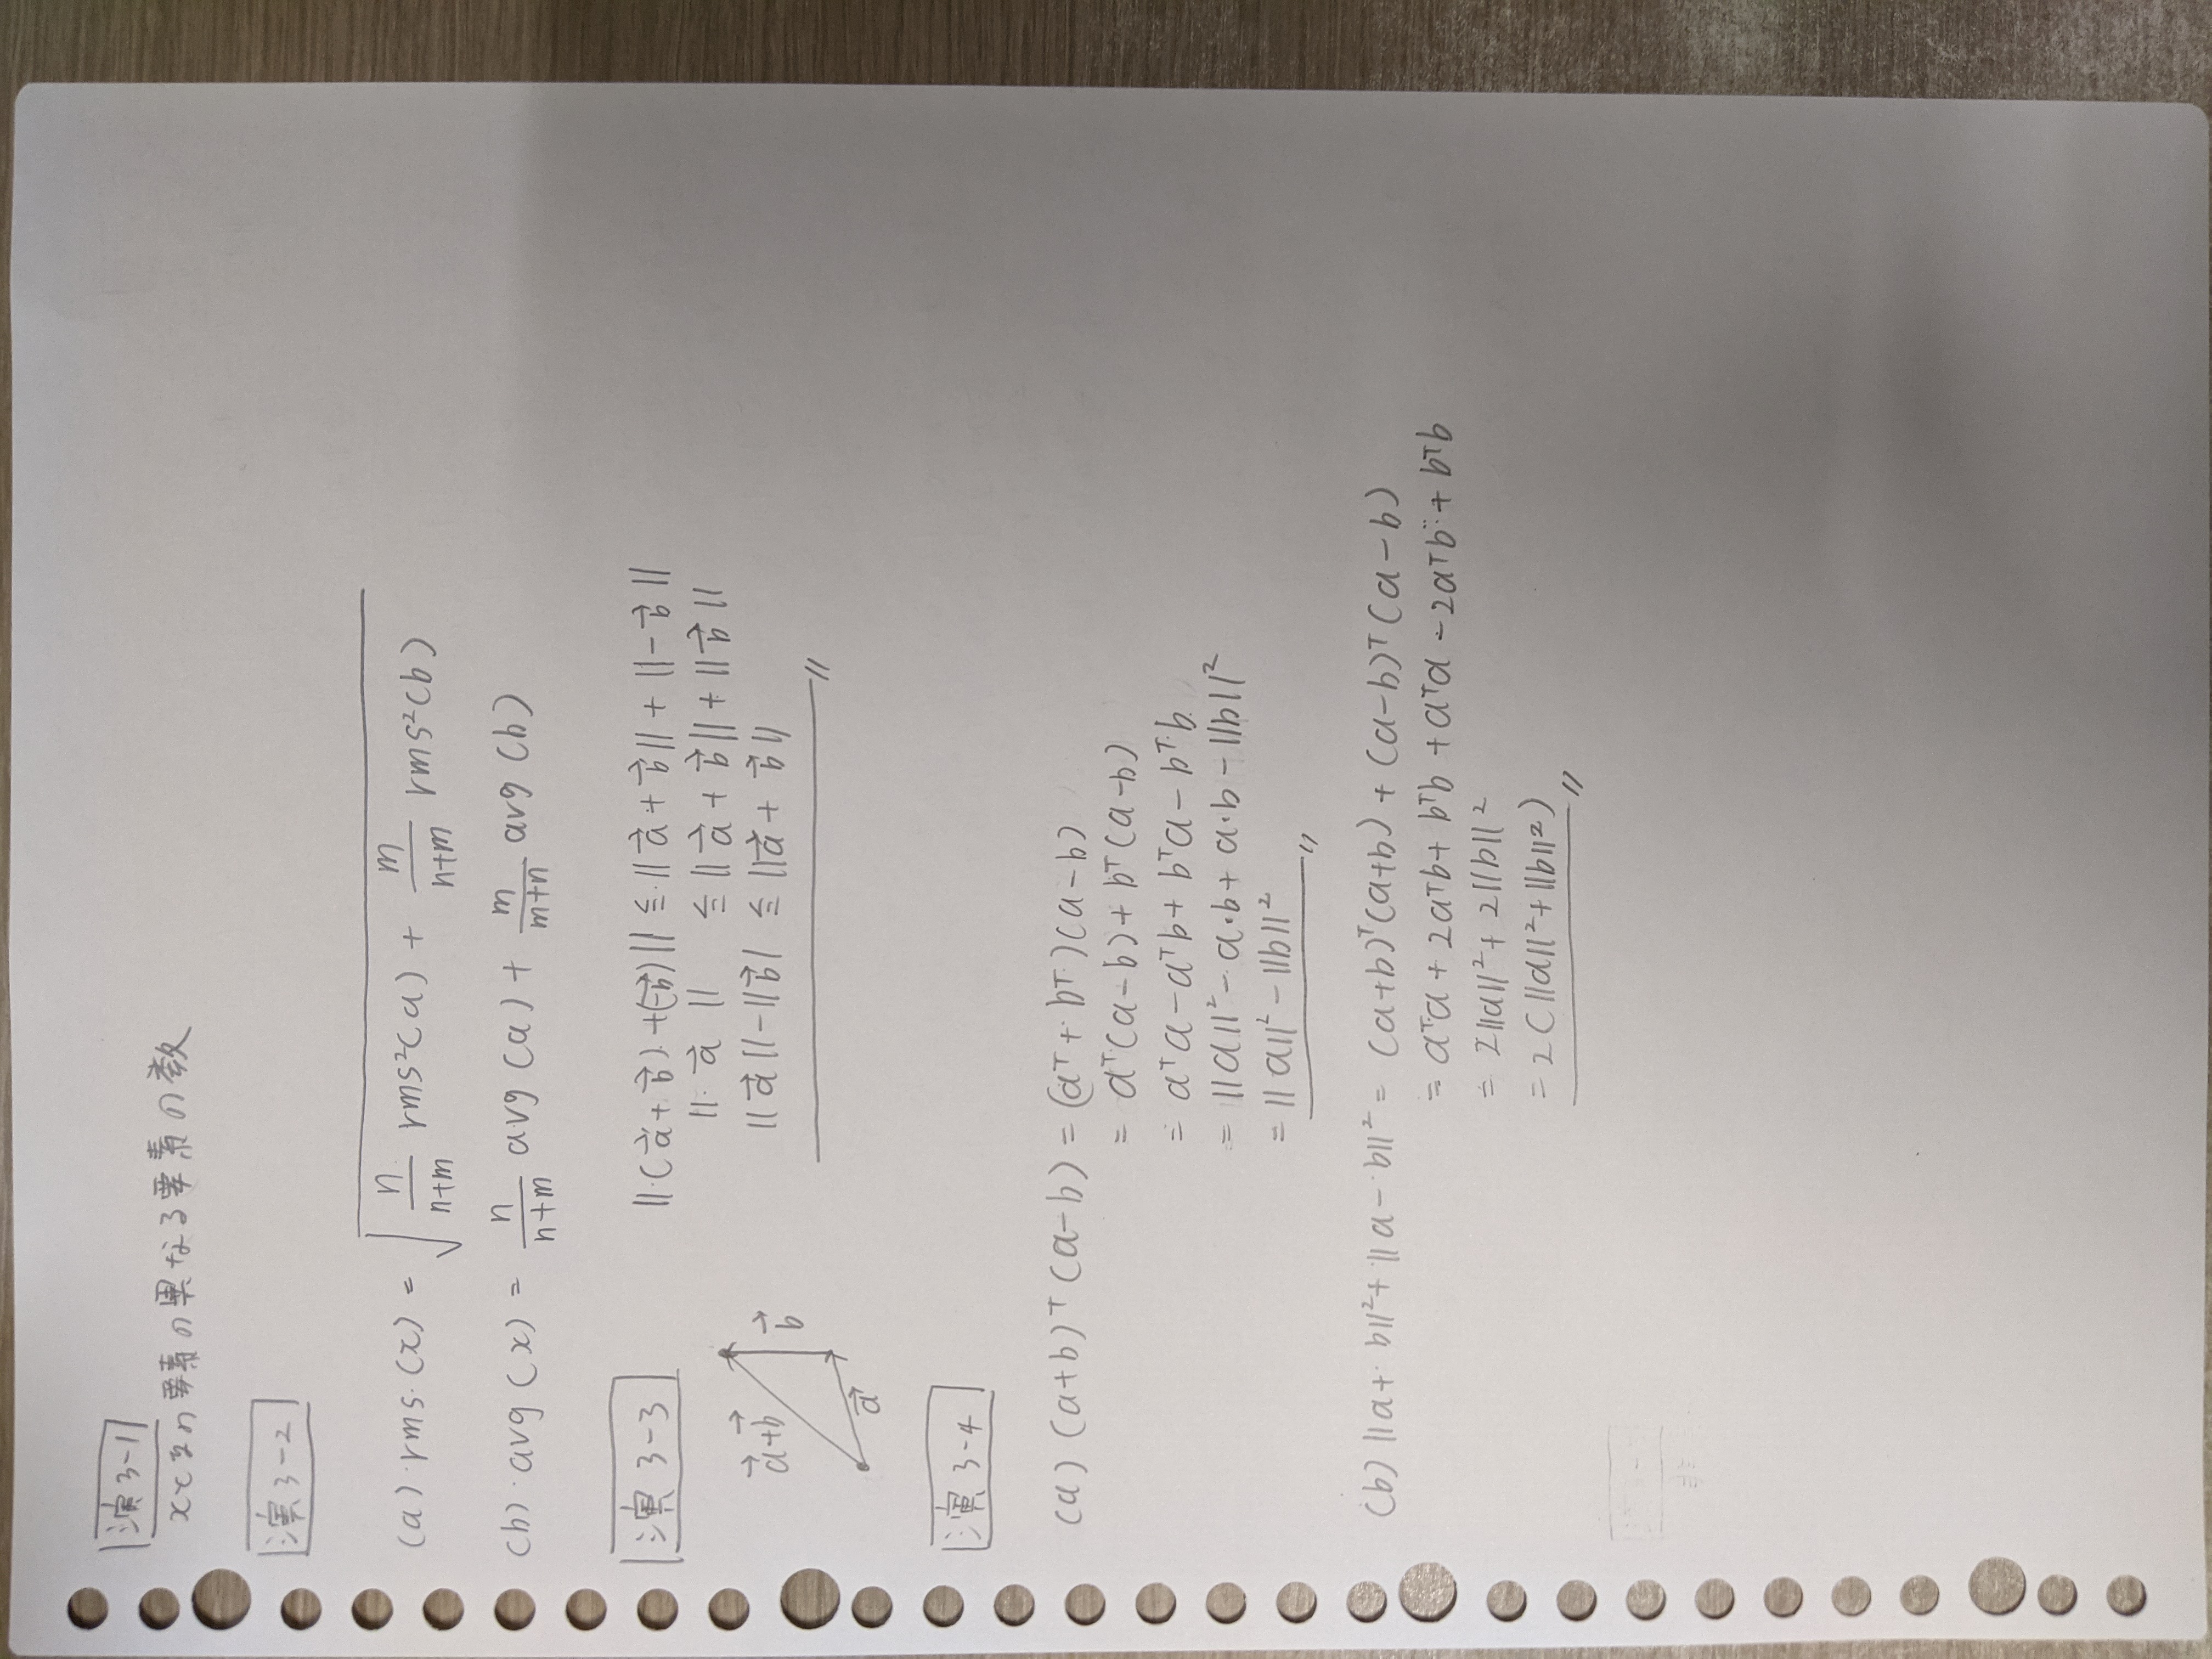 演3-1
xとyの要素の異なる要素の数
演3-2
(a) rms(x) = √( n/(n+m) rms²(a) + m/(n+m) rms²(b) )
(b) avg(x) = n/(n+m) avg(a) + m/(m+n) avg(b)
演3-3
||(a⃗+b⃗)+(-b⃗)|| ≦ ||a⃗+b⃗|| + ||-b⃗||
||a⃗|| ≦ ||a⃗+b⃗|| + ||b⃗||
||a⃗||-||b⃗| ≦ ||a⃗+b⃗||
a⃗+b⃗
b⃗
a⃗
演3-4
(a) (a+b)ᵀ(a-b) = (aᵀ+bᵀ)(a-b)
= aᵀ(a-b)+bᵀ(a-b)
= aᵀa-aᵀb+bᵀa-bᵀb
= ||a||²-a·b+a·b-||b||²
= ||a||²-||b||²
(b) ||a+b||²+||a-b||² = (a+b)ᵀ(a+b)+(a-b)ᵀ(a-b)
= aᵀa+2aᵀb+bᵀb+aᵀa-2aᵀb+bᵀb
= 2||a||²+2||b||²
= 2(||a||²+||b||²)